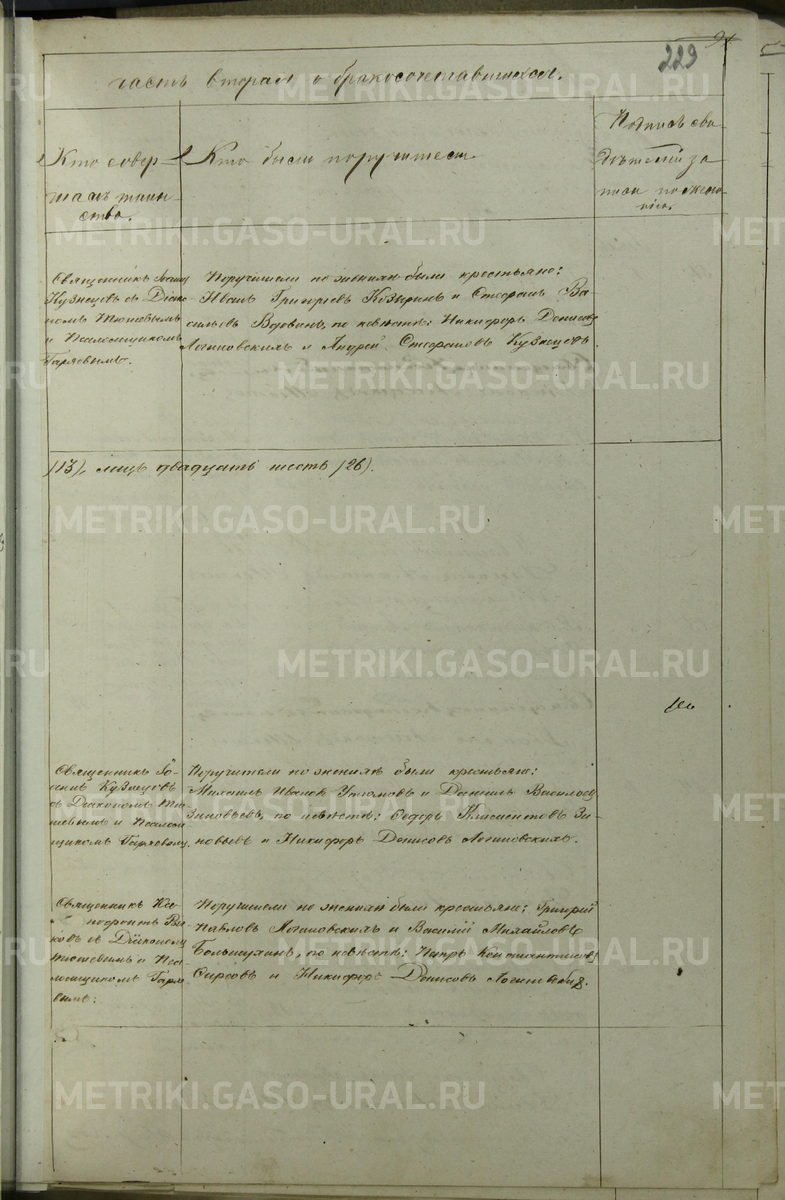 229
часть вторая о бракосочетавшихся.
Кто совер-
шалъ таин-
ство.
Кто были поручители
Подпись сви
дѣтелей за
писи по жела
нію.
Священникъ Іоаннъ
Кузнецовъ съ Діако
номъ Тютевымъ
и Псаломщикомъ
Гаряевымъ.
Поручители по женихѣ были крестьяне:
Иванъ Григорьевъ Козыринъ и Стефанъ Ва-
сильевъ Вдовинъ, по невѣстѣ: Никифоръ Денисовъ
Логиновскихъ и Андрей Стефановъ Кузнецовъ
(13), лицъ двадцать шесть (26).
Священникъ Іо-
аннъ Кузнецовъ
съ Діакономъ Тю-
тевымъ и Псалом
щикомъ Гаряевымъ.
Поручители по женихѣ были крестьяне:
Михаилъ Ивановъ и Даніилъ Васильевъ
Зиновьевъ, по невѣстѣ: Ѳедоръ Климентовъ Зи-
новьевъ и Никифоръ Денисовъ Логиновскихъ.
Священникъ
съ Діакономъ
Тютевымъ и Пса-
ломщикомъ Гаряе
вымъ.
Поручители по женихѣ были крестьяне: Григорій
Павловъ Логиновскихъ и Василій Михайловъ
по невѣстѣ: Петръ Константиновъ
и Никифоръ Денисовъ Логиновскихъ.
METRIKI.GASO-URAL.RU